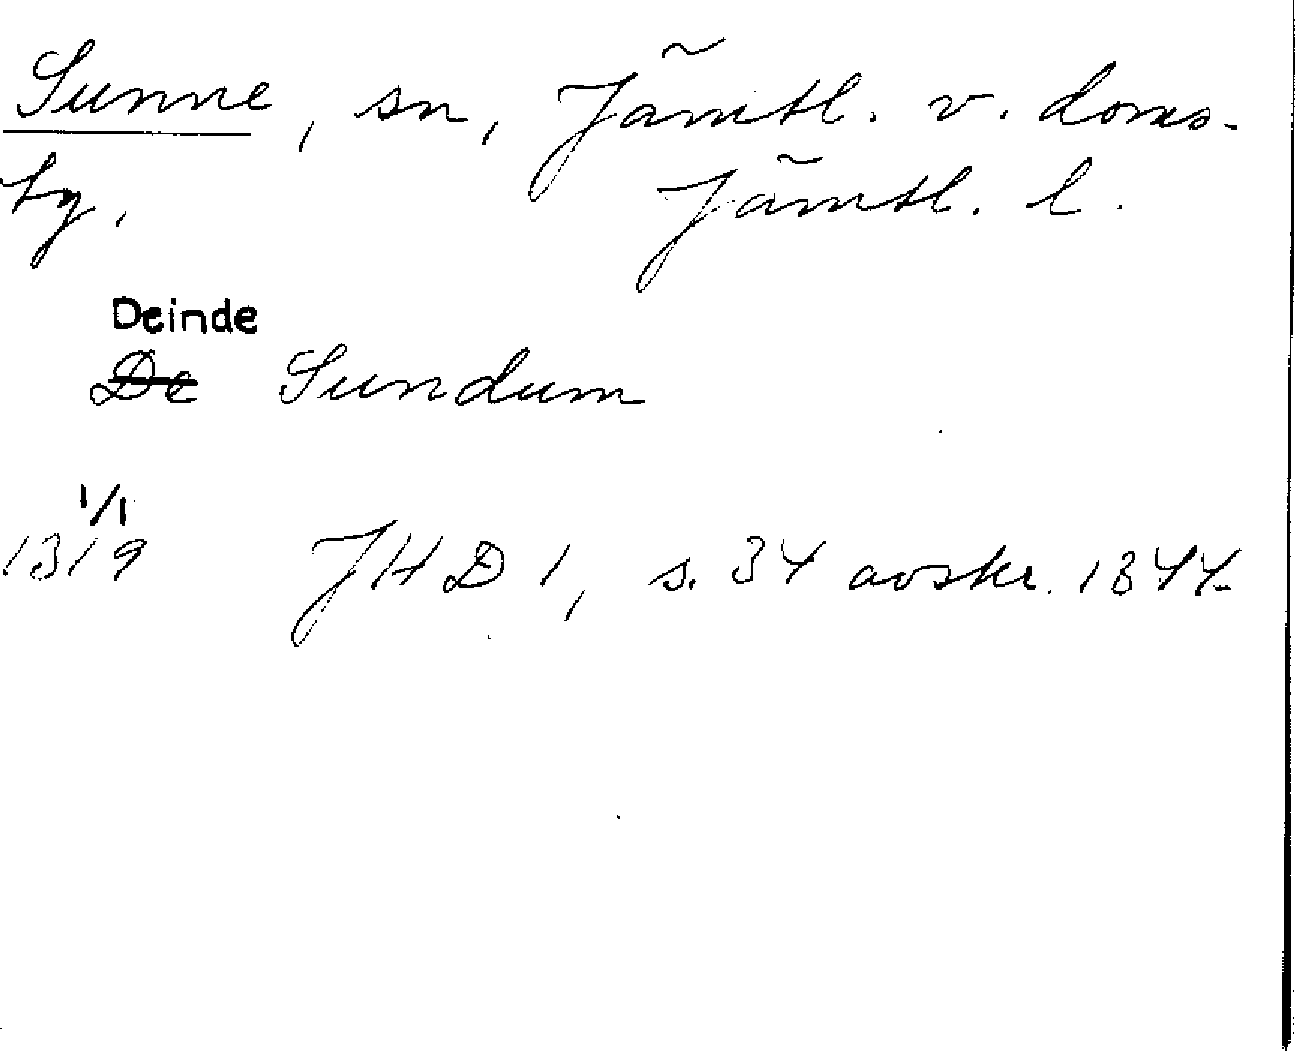 Sunne, sn, Jämtl. v. doms-
hg, Jämtl. l.
Deinde
De Sundum
1/1
1319 JHD 1, s. 34 avskr. 1344.